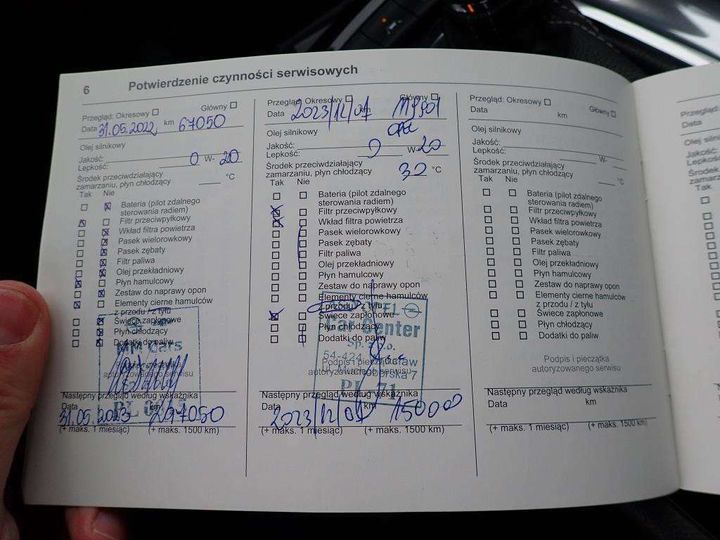 6 Potwierdzenie czynności serwisowych
Przegląd: Okresowy Główny
Data 31.05.2022 km 67050
Olej silnikowy
Jakość:
Lepkość: 0 W- 20
Środek przeciwdziałający
zamarzaniu, płyn chłodzący °C
Tak Nie
Bateria (pilot zdalnego
sterowania radiem)
Filtr przeciwpyłkowy
Wkład filtra powietrza
Pasek wielorowkowy
Pasek zębaty
Filtr paliwa
Olej przekładniowy
Płyn hamulcowy
Zestaw do naprawy opon
Elementy cierne hamulców
z przodu / z tyłu
Świece zapłonowe
Płyn chłodzący
Dodatki do paliw
MM Cars
autoryzowanego serwisu
Następny przegląd według wskaźnika
Data km
31.05.2023 97050
(+ maks. 1 miesiąc) (+ maks. 1500 km)
Przegląd: Okresowy Główny
Data 2023/12/01
Olej silnikowy
Jakość:
Lepkość: 0 W- 20
Środek przeciwdziałający
zamarzaniu, płyn chłodzący 32 °C
Tak Nie
Bateria (pilot zdalnego
sterowania radiem)
Filtr przeciwpyłkowy
Wkład filtra powietrza
Pasek wielorowkowy
Pasek zębaty
Filtr paliwa
Olej przekładniowy
Płyn hamulcowy
Zestaw do naprawy opon
Elementy cierne hamulców
z przodu / z tyłu
Świece zapłonowe
Płyn chłodzący
Dodatki do paliw
Center
54-424
Podpis i pieczątka
autoryzowanego serwisu
PL 71
Następny przegląd według wskaźnika
Data km
(+ maks. 1 miesiąc) (+ maks. 1500 km)
Przegląd: Okresowy Główny
Data km
Olej silnikowy
Jakość:
Lepkość: W-
Środek przeciwdziałający
zamarzaniu, płyn chłodzący °C
Tak Nie
Bateria (pilot zdalnego
sterowania radiem)
Filtr przeciwpyłkowy
Wkład filtra powietrza
Pasek wielorowkowy
Pasek zębaty
Filtr paliwa
Olej przekładniowy
Płyn hamulcowy
Zestaw do naprawy opon
Elementy cierne hamulców
z przodu / z tyłu
Świece zapłonowe
Płyn chłodzący
Dodatki do paliw
Podpis i pieczątka
autoryzowanego serwisu
Następny przegląd według wskaźnika
Data km
(+ maks. 1 miesiąc) (+ maks. 1500 km)